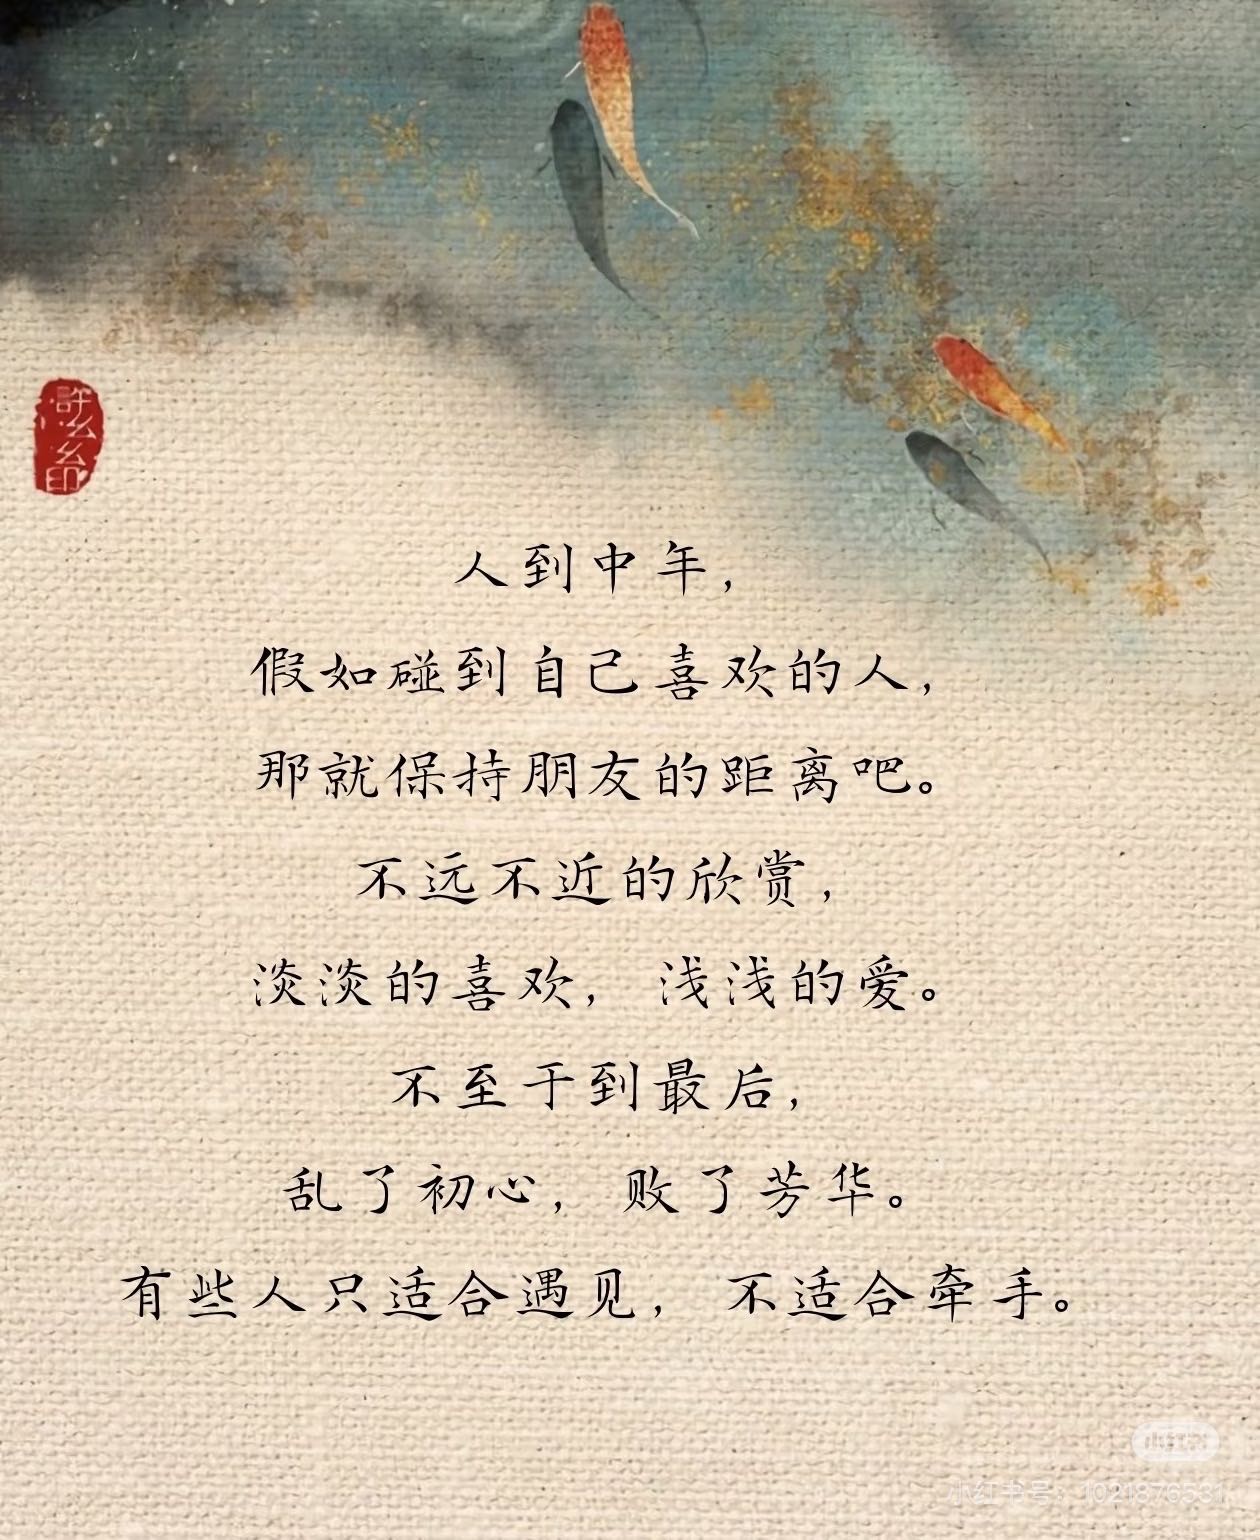 許幺幺印
人到中年，
假如碰到自己喜欢的人，
那就保持朋友的距离吧。
不远不近的欣赏，
淡淡的喜欢，浅浅的爱。
不至于到最后，
乱了初心，败了芳华。
有些人只适合遇见，不适合牵手。
小红书
小红书号：1021876531